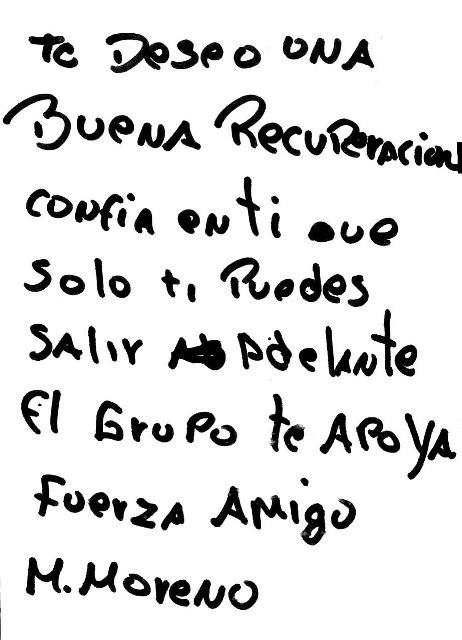 te Deseo UNA
BUENA RecuPeracion
confia en ti que
solo ti Puedes
SAlir Adelante
El GruPo te APoYA
Fuerza AMigo
M. Moreno